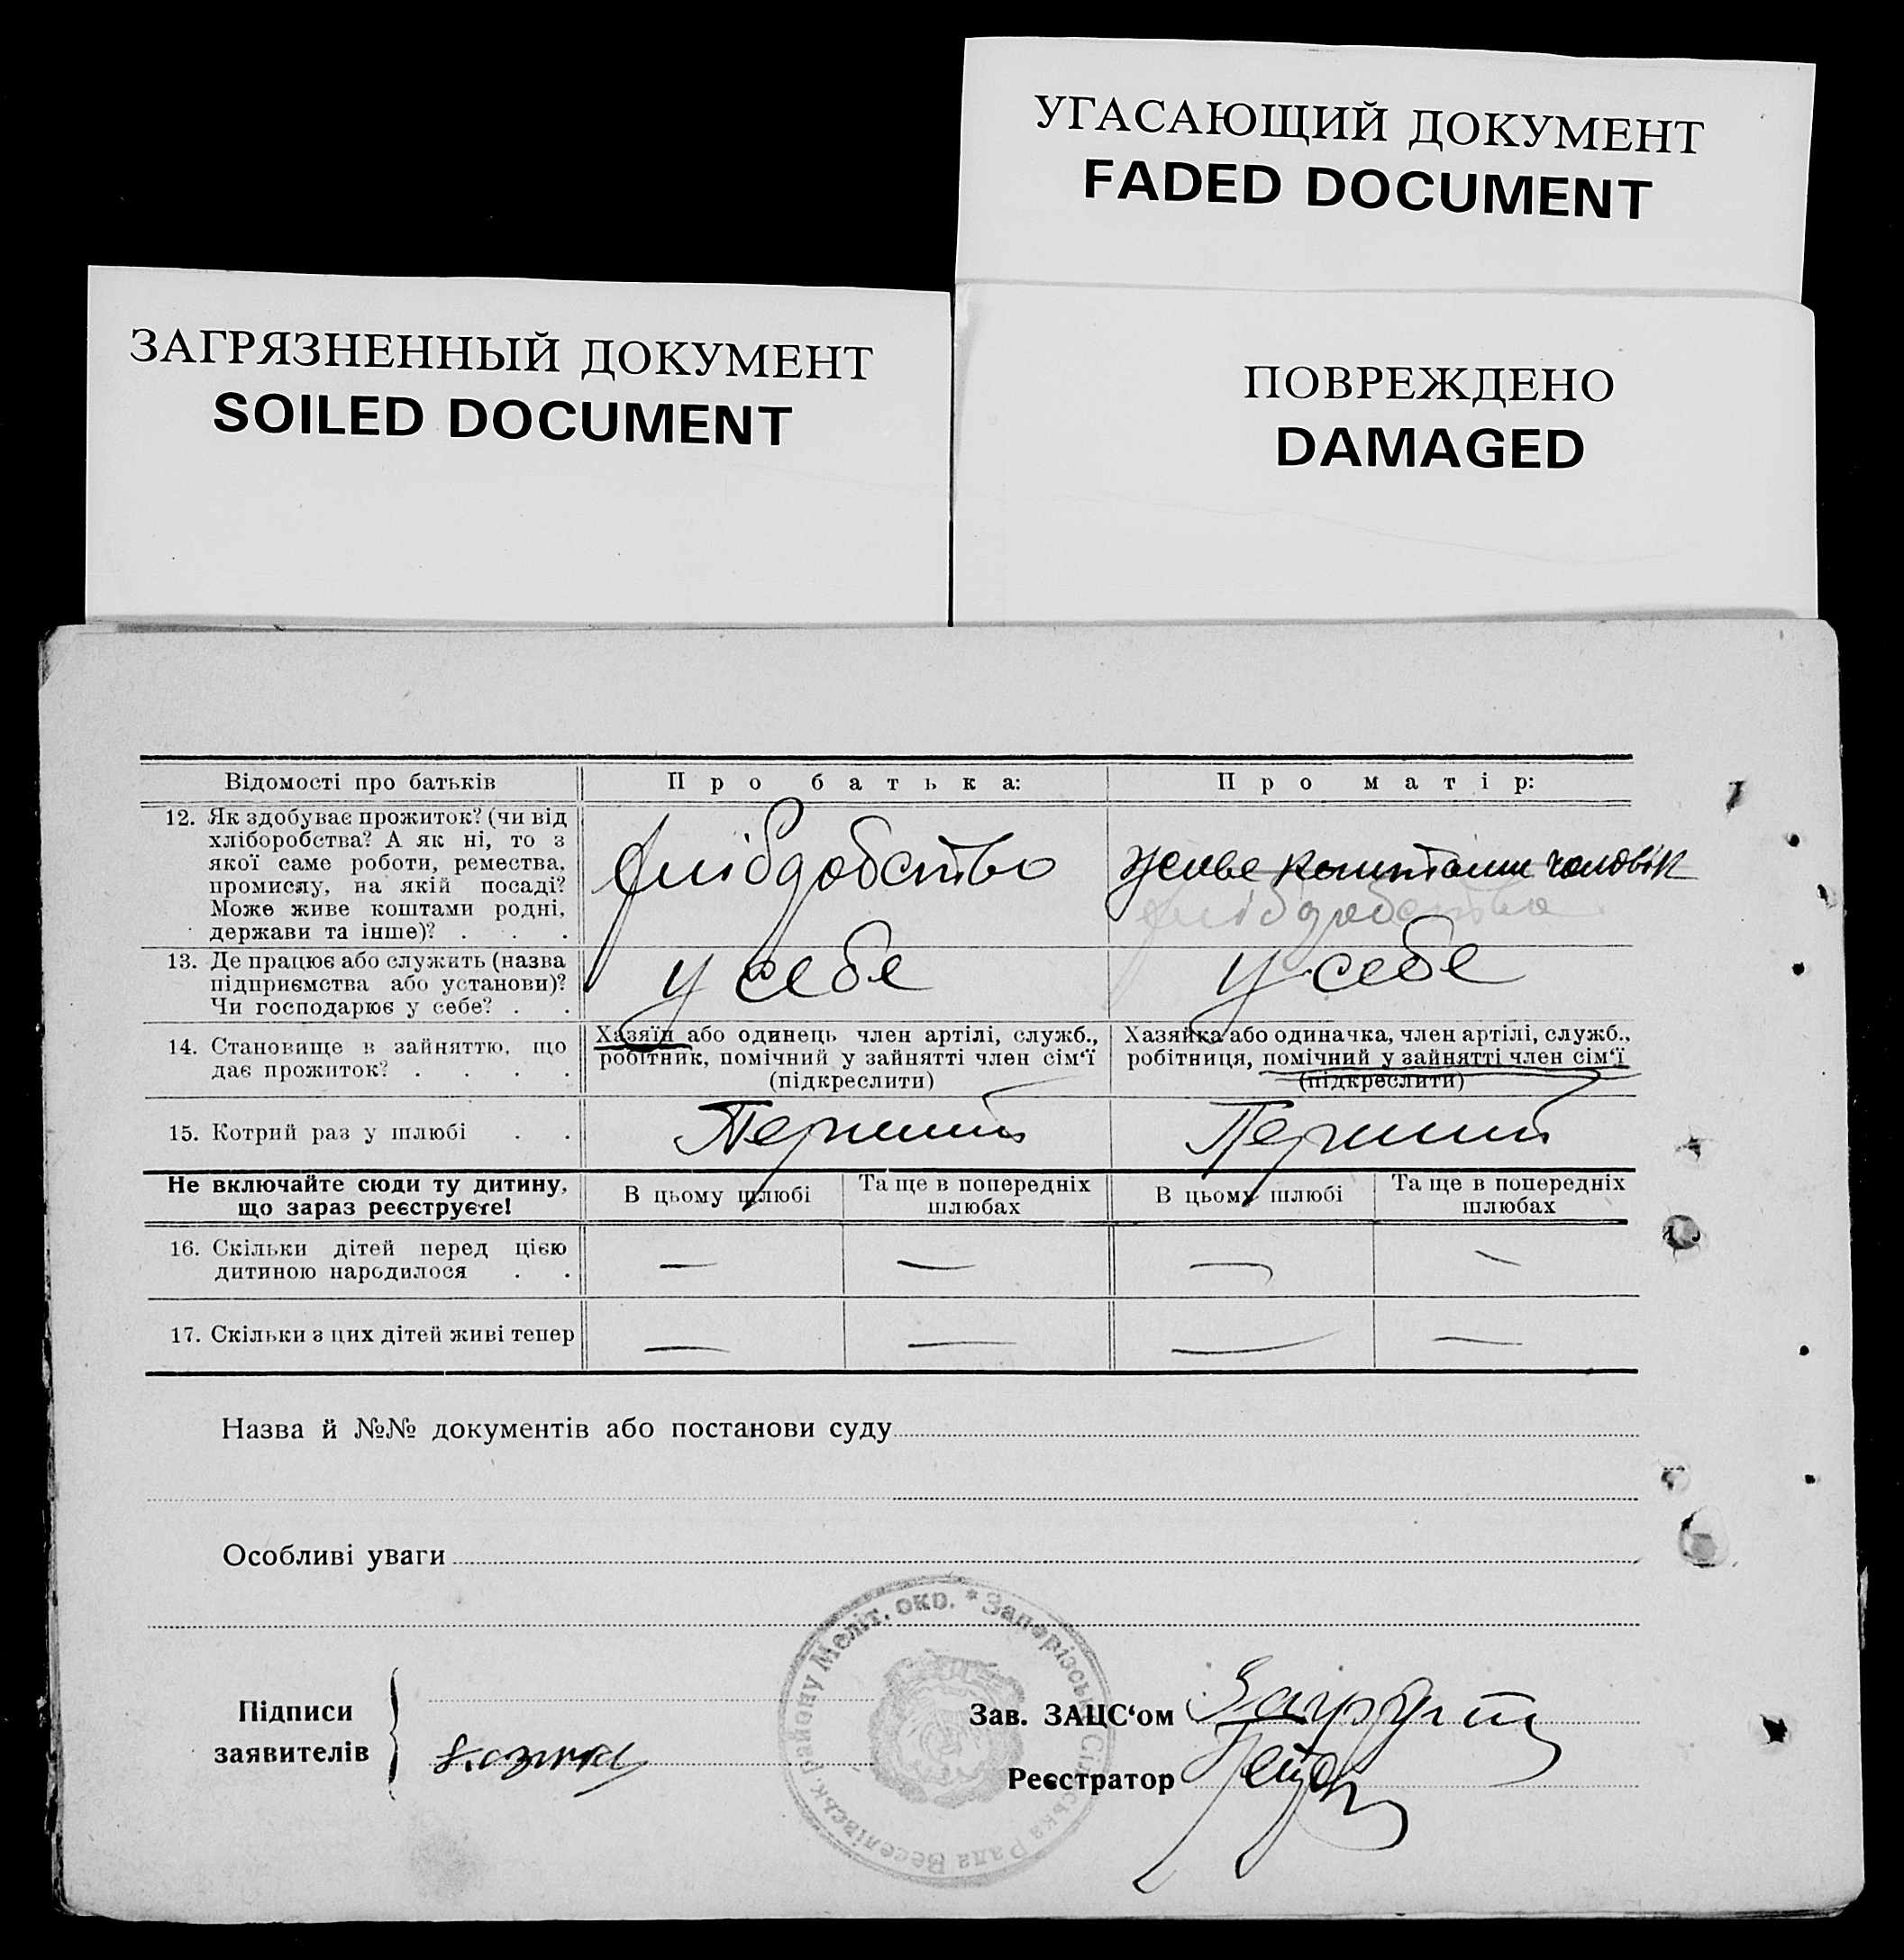 УГАСАЮЩИЙ ДОКУМЕНТ
FADED DOCUMENT
ЗАГРЯЗНЕННЫЙ ДОКУМЕНТ
SOILED DOCUMENT
ПОВРЕЖДЕНО
DAMAGED
Відомості про батьків Про батька: Про матір:
12. Як здобуває прожиток? (чи від
хліборобства? А як ні, то з
якої саме роботи, ремества,
промислу, на якій посаді?
Може живе коштами родні,
держави та інше)? . . .
живе коштами чоловік
13. Де працює або служить (назва
підприємства або установи)?
Чи господарює у себе? . .
у себе у себе
14. Становище в зайняттю, що
дає прожиток? . . . .
Хазяїн або одинець член артілі, служб.,
робітник, помічний у зайнятті член сім‘ї
(підкреслити)
Хазяйка або одиначка, член артілі, служб.,
робітниця, помічний у зайнятті член сім‘ї
(підкреслити)
15. Котрий раз у шлюбі . . Перший Перший
Не включайте сюди ту дитину,
що зараз реєструєте!
В цьому шлюбі Та ще в попередніх
шлюбах
В цьому шлюбі Та ще в попередніх
шлюбах
16. Скільки дітей перед цією
дитиною народилося . . — — — —
17. Скільки з цих дітей живі тепер — — — —
Назва й №№ документів або постанови суду
Особливі уваги
Підписи
заявителів
Зав. ЗАЦС‘ом
Реєстратор
Сільська Рада Веселівськ. району Меліт. окр. * Запорізськ